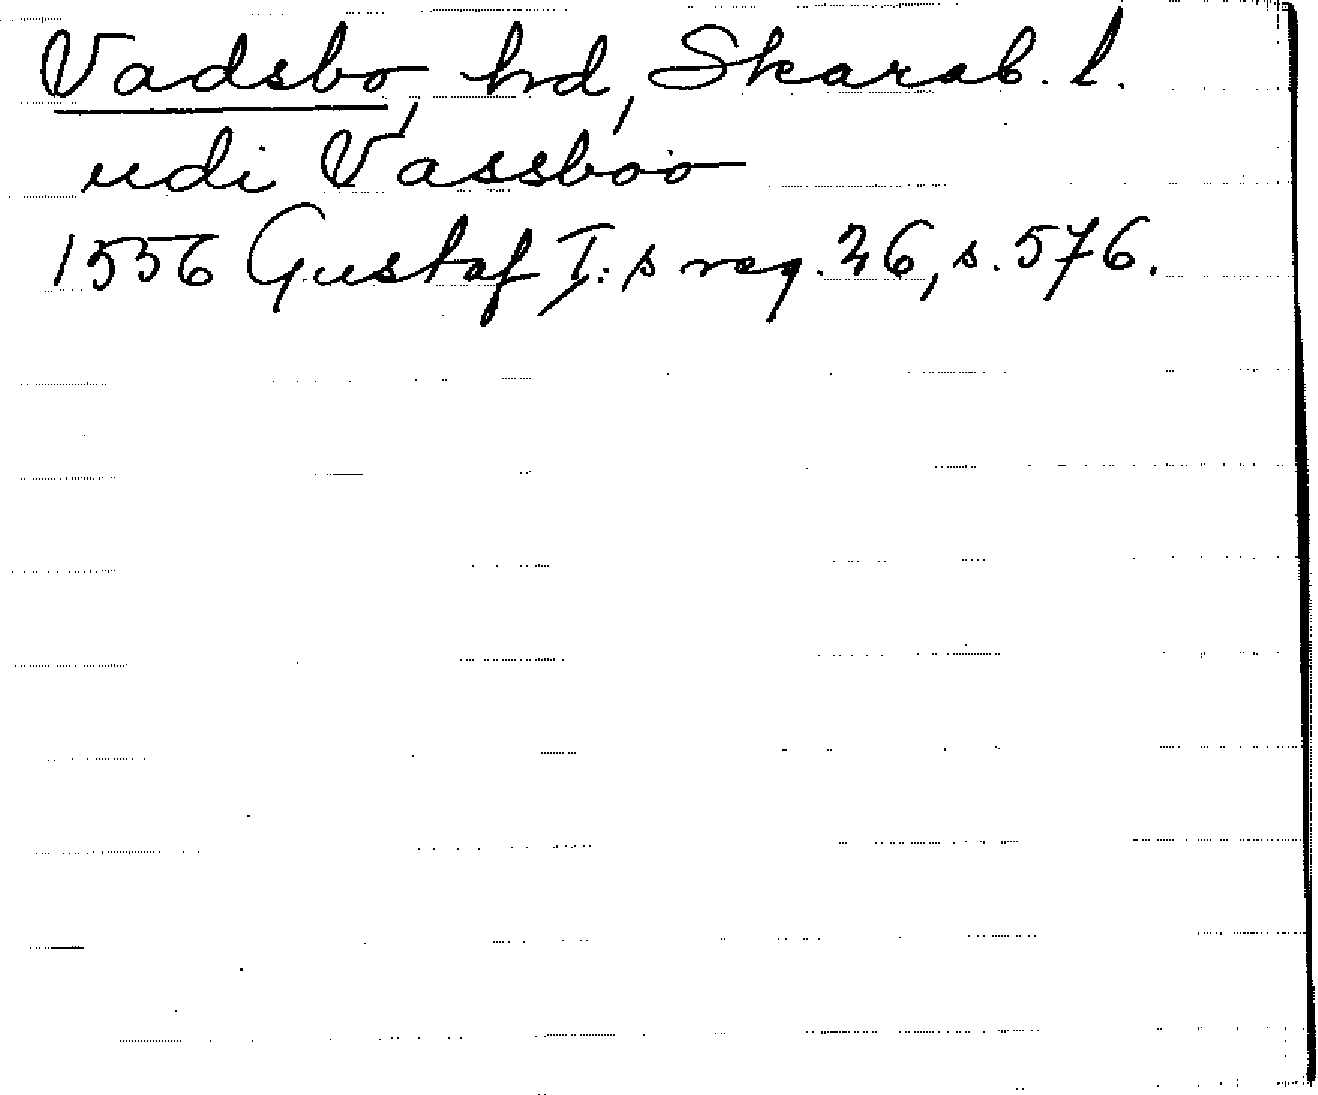 Vadsbo, hd, Skarab. l.
udi Vassboo
1556 Gustaf I:s reg. 26, s. 576.